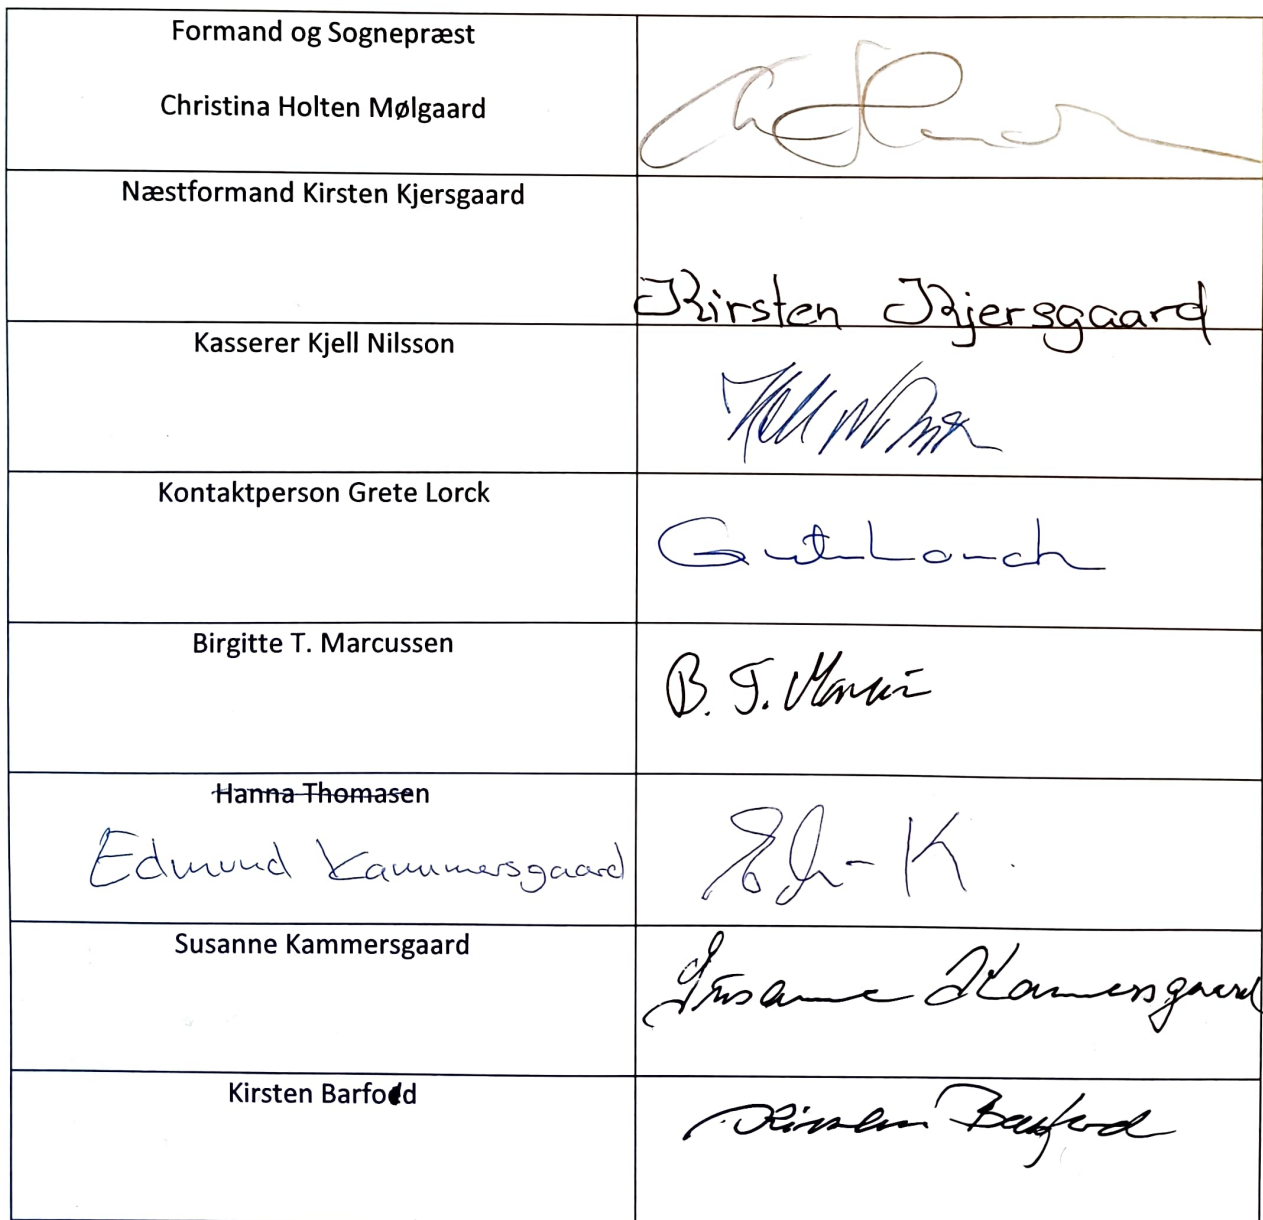 Formand og Sognepræst
Christina Holten Mølgaard
Næstformand Kirsten Kjersgaard
Kirsten Kjersgaard
Kasserer Kjell Nilsson
Kontaktperson Grete Lorck
Grete Lorck
Birgitte T. Marcussen
B. T. 
Hanna Thomasen
Edmund Kammersgaard
Susanne Kammersgaard
Susanne Kammersgaard
Kirsten Barfod
Kirsten Barfod